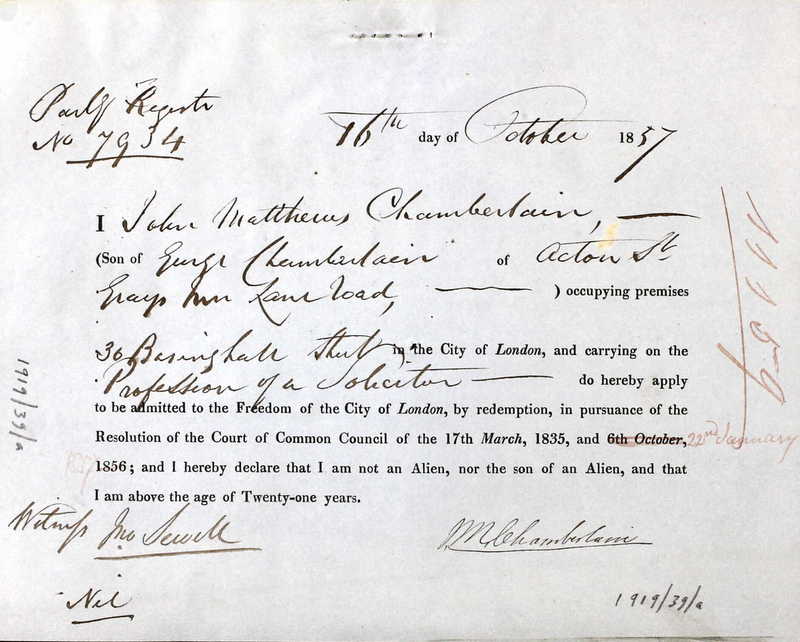 Register
No 7934
16th day of October 1857
I John Matthews Chamberlain,
(Son of George Chamberlain of Acton St
Grays Inn Lane Road, ) occupying premises
30 Basinghall Street in the City of London, and carrying on the
Profession of a Solicitor do hereby apply
to be admitted to the Freedom of the City of London, by redemption, in pursuance of the
Resolution of the Court of Common Council of the 17th March, 1835, and 6th October, 22nd January
1857
1856; and I hereby declare that I am not an Alien, nor the son of an Alien, and that
I am above the age of Twenty-one years.
Witness Jno Sewell
JM Chamberlain
Nil
1919/39/a
1919/39/a